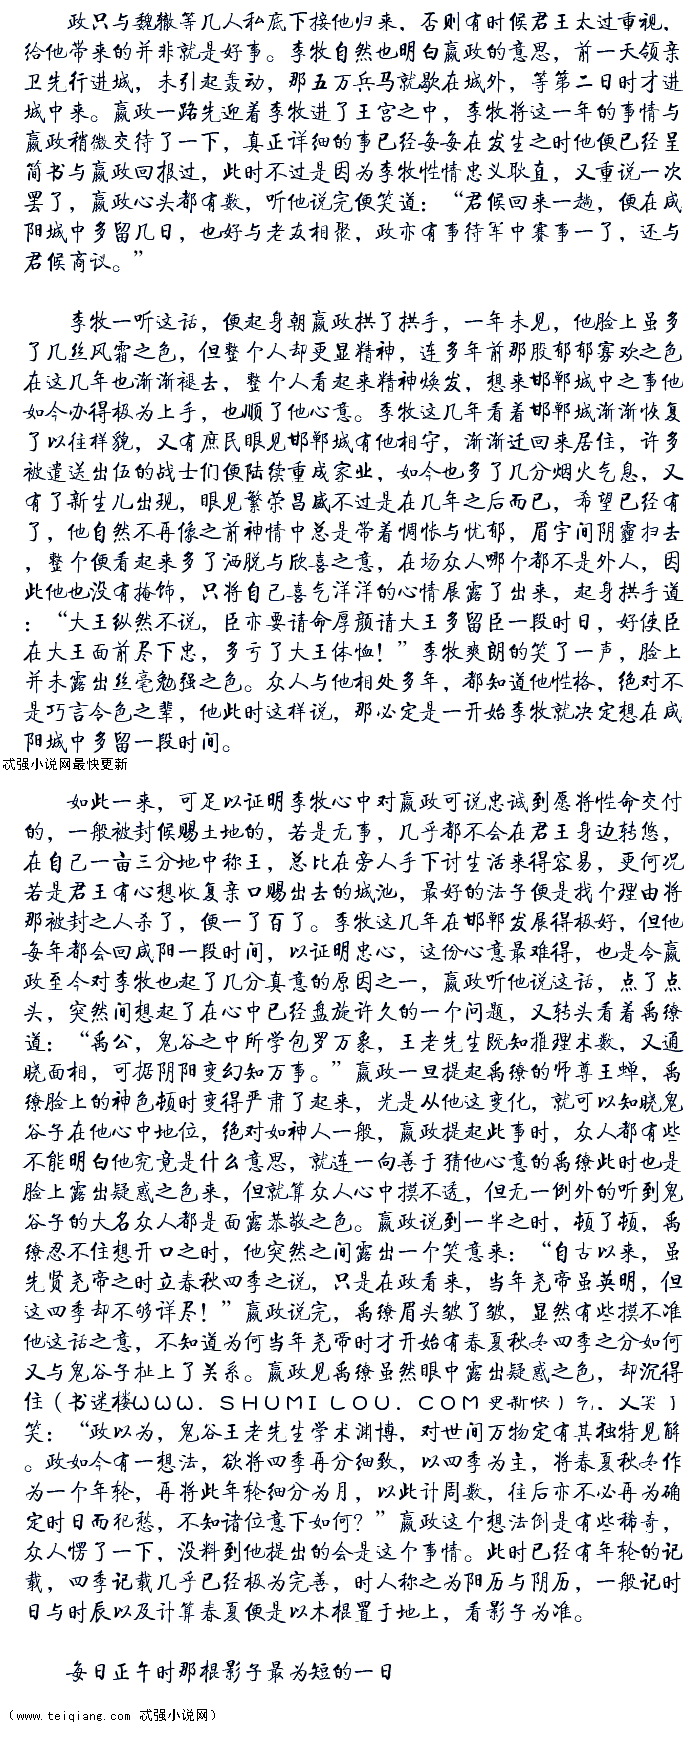 政只与魏辙等几人私底下接他归来，否则有时候君王太过重视，
给他带来的并非就是好事。李牧自然也明白嬴政的意思，前一天领亲
卫先行进城，未引起轰动，那五万兵马就歇在城外，等第二日时才进
城中来。嬴政一路先迎着李牧进了王宫之中，李牧将这一年的事情与
嬴政稍微交待了一下，真正详细的事已经每每在发生之时他便已经呈
简书与嬴政回报过，此时不过是因为李牧性情忠义耿直，又重说一次
罢了，嬴政心头都有数，听他说完便笑道：“君候回来一趟，便在咸
阳城中多留几日，也好与老友相聚，政亦有事待军中赛事一了，还与
君候商议。”
李牧一听这话，便起身朝嬴政拱了拱手，一年未见，他脸上虽多
了几丝风霜之色，但整个人却更显精神，连多年前那股郁郁寡欢之色
在这几年也渐渐褪去，整个人看起来精神焕发，想来邯郸城中之事他
如今办得极为上手，也顺了他心意。李牧这几年看着邯郸城渐渐恢复
了以往样貌，又有庶民眼见邯郸城有他相守，渐渐迁回来居住，许多
被遣送出伍的战士们便陆续重成家业，如今也多了几分烟火气息，又
有了新生儿出现，眼见繁荣昌盛不过是在几年之后而已，希望已经有
了，他自然不再像之前神情中总是带着惆怅与忧郁，眉宇间阴霾扫去
，整个便看起来多了洒脱与欣喜之意，在场众人哪个都不是外人，因
此他也没有掩饰，只将自己喜气洋洋的心情展露了出来，起身拱手道
：“大王纵然不说，臣亦要请命厚颜请大王多留臣一段时日，好使臣
在大王面前尽下忠，多亏了大王体恤！”李牧爽朗的笑了一声，脸上
并未露出丝毫勉强之色。众人与他相处多年，都知道他性格，绝对不
是巧言令色之辈，他此时这样说，那必定是一开始李牧就决定想在咸
阳城中多留一段时间。
忒强小说网最快更新
如此一来，可足以证明李牧心中对嬴政可说忠诚到愿将性命交付
的，一般被封候赐土地的，若是无事，几乎都不会在君王身边转悠，
在自己一亩三分地中称王，总比在旁人手下讨生活来得容易，更何况
若是君王有心想收复亲口赐出去的城池，最好的法子便是找个理由将
那被封之人杀了，便一了百了。李牧这几年在邯郸发展得极好，但他
每年都会回咸阳一段时间，以证明忠心，这份心意最难得，也是令嬴
政至今对李牧也起了几分真意的原因之一，嬴政听他说这话，点了点
头，突然间想起了在心中已经盘旋许久的一个问题，又转头看着禹缭
道：“禹公，鬼谷之中所学包罗万象，王老先生既知推理术数，又通
晓面相，可据阴阳变幻知万事。”嬴政一旦提起禹缭的师尊王蝉，禹
缭脸上的神色顿时变得严肃了起来，光是从他这变化，就可以知晓鬼
谷子在他心中地位，绝对如神人一般，嬴政提起此事时，众人都有些
不能明白他究竟是什么意思，就连一向善于猜他心意的禹缭此时也是
脸上露出疑惑之色来，但就算众人心中摸不透，但无一例外的听到鬼
谷子的大名众人都是面露恭敬之色。嬴政说到一半之时，顿了顿，禹
缭忍不住想开口之时，他突然之间露出一个笑意来：“自古以来，虽
先贤尧帝之时立春秋四季之说，只是在政看来，当年尧帝虽英明，但
这四季却不够详尽！”嬴政说完，禹缭眉头皱了皱，显然有些摸不准
他这话之意，不知道为何当年尧帝时才开始有春夏秋冬四季之分如何
又与鬼谷子扯上了关系。嬴政见禹缭虽然眼中露出疑惑之色，却沉得
住（书迷楼ＷＷＷ．ＳＨＵＭＩＬＯＵ．ＣＯＭ更新快）气，又笑了
笑：“政以为，鬼谷王老先生学术渊博，对世间万物定有其独特见解
。政如今有一想法，欲将四季再分细致，以四季为主，将春夏秋冬作
为一个年轮，再将此年轮细分为月，以此计周数，往后亦不必再为确
定时日而犯愁，不知诸位意下如何？”嬴政这个想法倒是有些稀奇，
众人愣了一下，没料到他提出的会是这个事情。此时已经有年轮的记
载，四季记载几乎已经极为完善，时人称之为阳历与阴历，一般记时
日与时辰以及计算春夏便是以木棍置于地上，看影子为准。
每日正午时那棍影子最为短的一日
（www.teiqiang.com 忒强小说网）